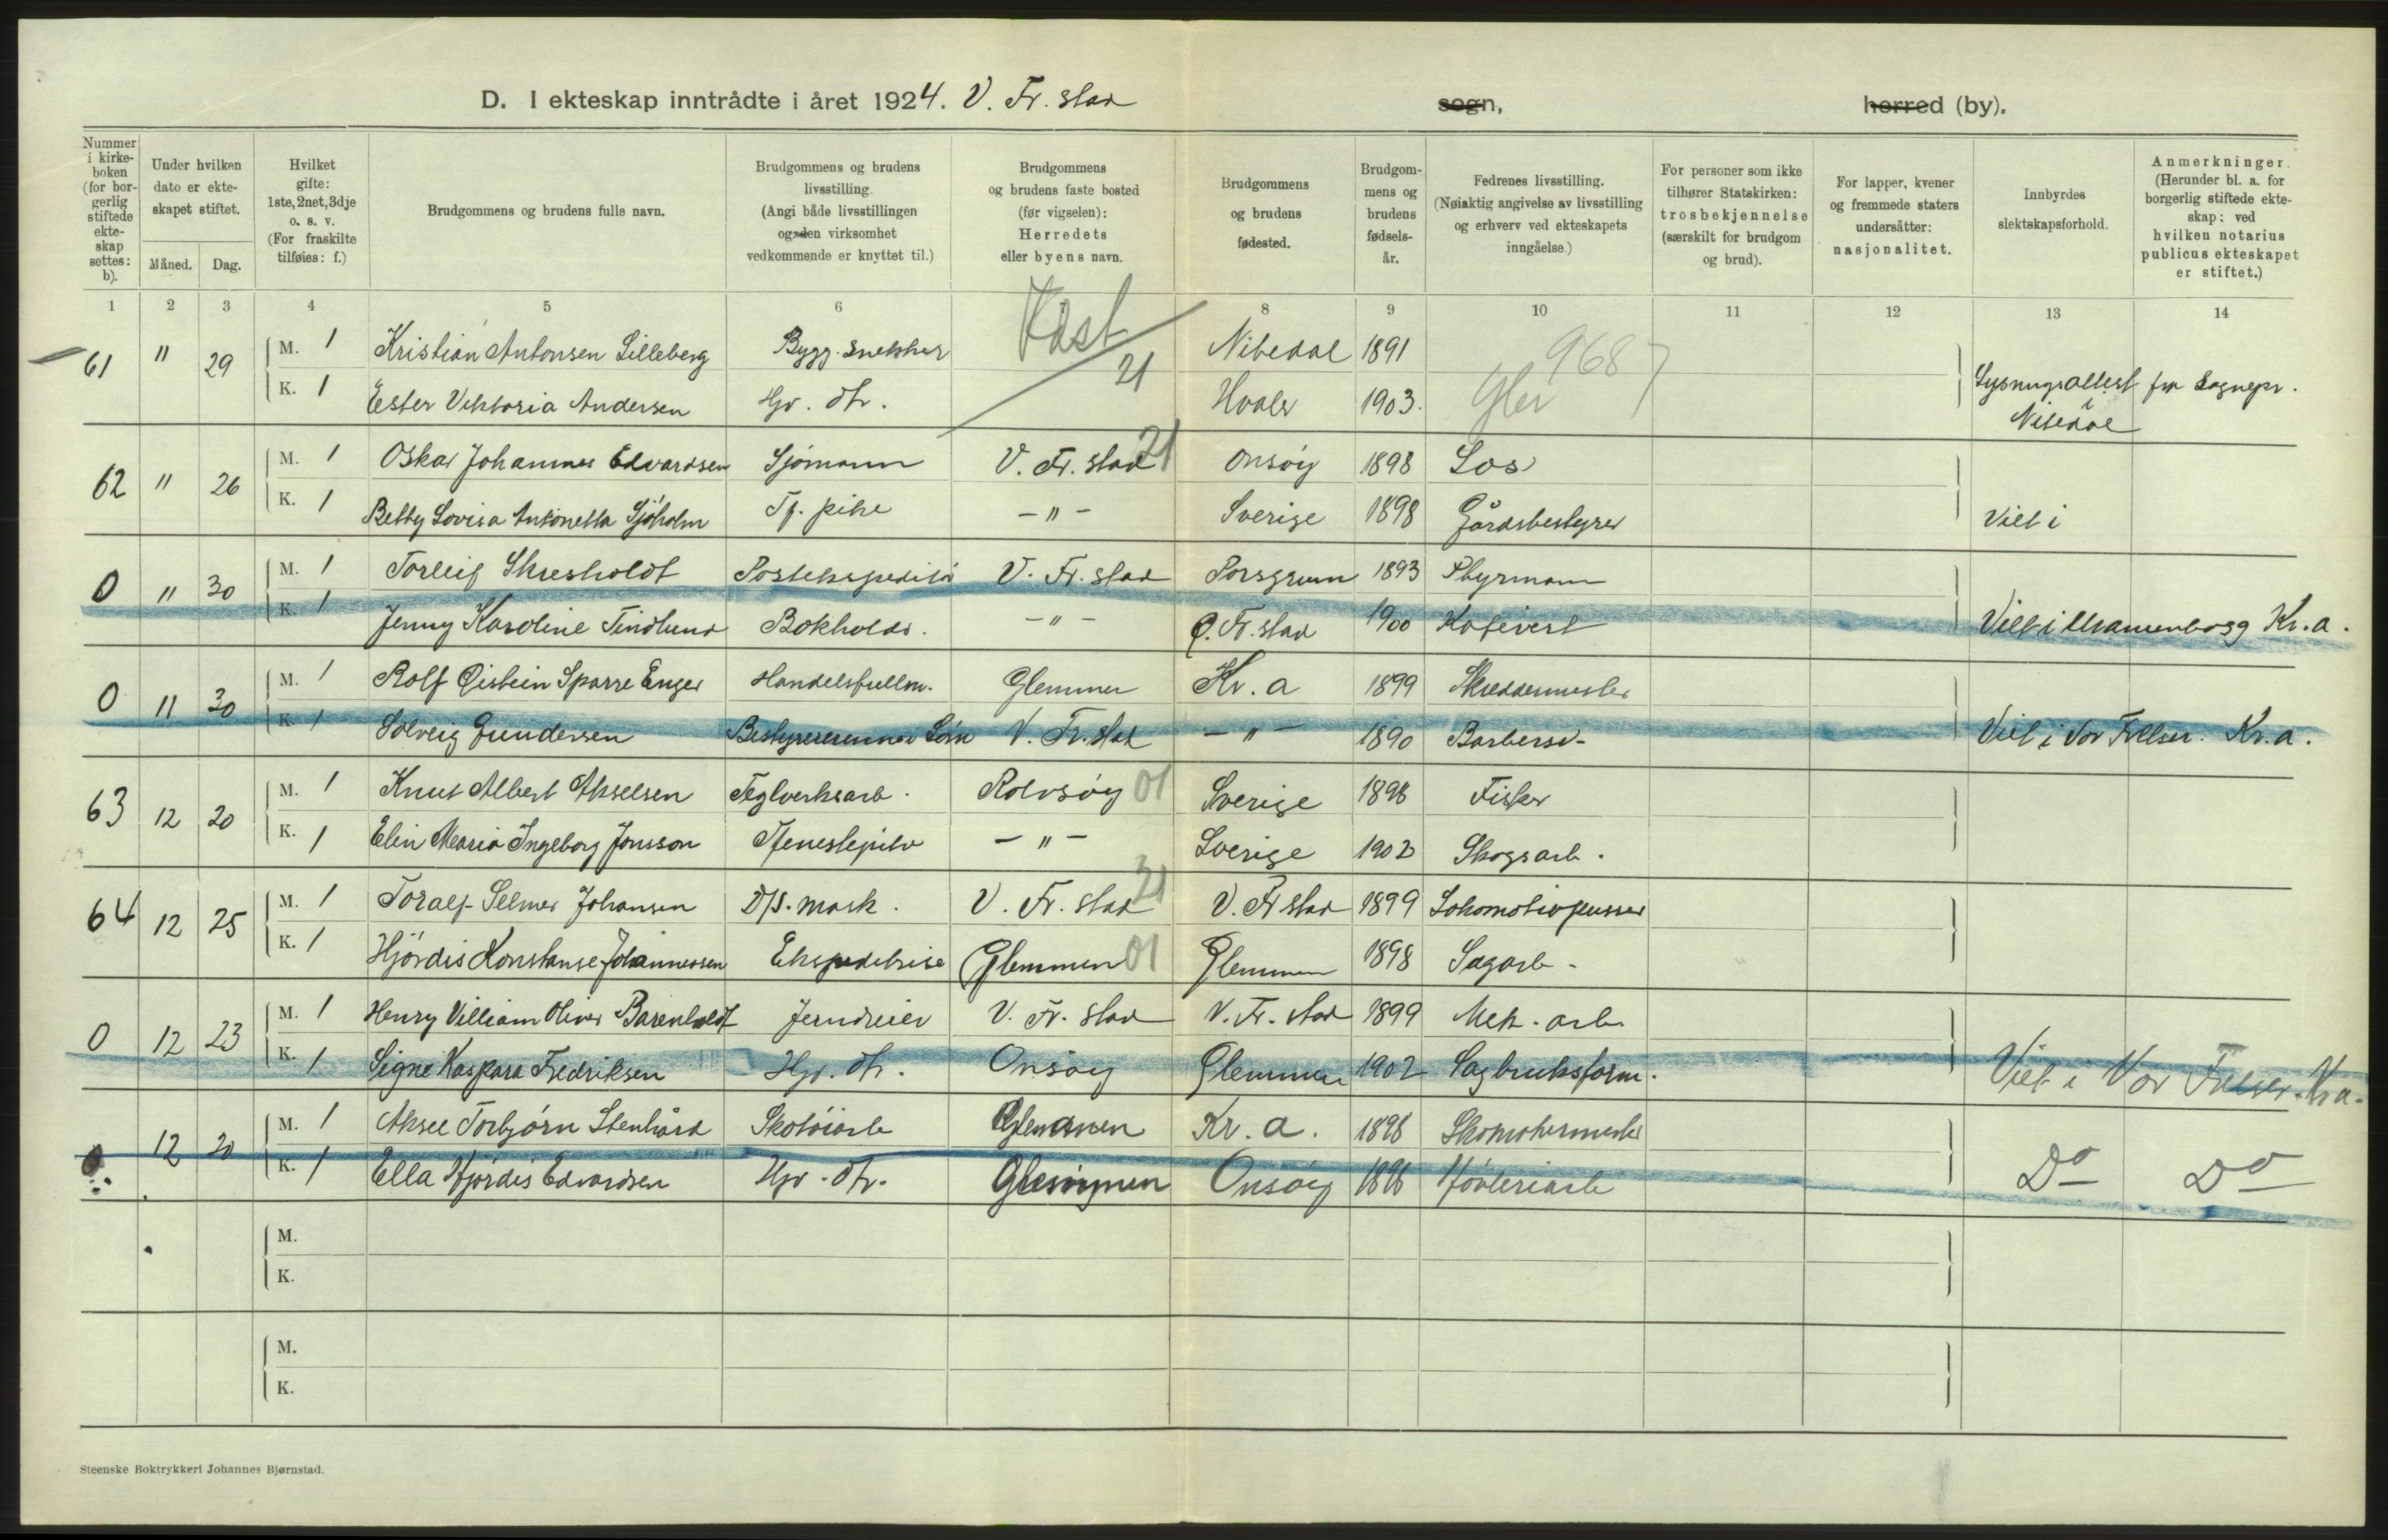 D. I ekteskap inntrådte i året 1924. V. Fr. stad sogn, herred (by).
Nummer i kirkeboken (for borgerlig stiftede ekteskap settes: b).
Under hvilken dato er ekteskapet stiftet.
Måned. Dag.
Hvilket gifte: 1ste, 2net, 3dje o. s. v. (For fraskilte tilføies: f.)
Brudgommens og brudens fulle navn.
Brudgommens og brudens livsstilling. (Angi både livsstillingen og den virksomhet vedkommende er knyttet til.)
Brudgommens og brudens faste bosted (før vigselen): Herredets eller byens navn.
Brudgommens og brudens fødested.
Brudgommens og brudens fødselsår.
Fedrenes livsstilling. (Nøiaktig angivelse av livsstilling og erhverv ved ekteskapets inngåelse.)
For personer som ikke tilhører Statskirken: trosbekjennelse (særskilt for brudgom og brud).
For lapper, kvener og fremmede staters undersåtter: nasjonalitet.
Innbyrdes slektskapsforhold.
Anmerkninger. (Herunder bl. a. for borgerlig stiftede ekteskap: ved hvilken notarius publicus ekteskapet er stiftet.)
1 2 3 4 5 6 8 9 10 11 12 13 14
61 " 29 M. 1 Kristian Antonsen Lilleberg Bygg. snekker 21 Nitedal 1891 968
K. 1 Ester Viktoria Andersen Hjv. dtr. Hvaler 1903. Lysningsattest fra Sognepr. i Nitedal
62 " 26 M. 1 Oskar Johannes Edvardsen Sjömann V. Fr. stad 21 Onsöy 1898 Los
K. 1 Betty Lovisa Antonetta Sjöholm Tj. pike - " - Sverige 1898 Gårdsbestyrer Viet i
0 " 30 M. 1 Torleif Skresholdt Postekspeditör V. Fr. stad Porsgrunn 1893 Styrmann
K. 1 Jenny Karoline Tindlund Bokholder. - " - Ö. Fr. stad 1900 Kafevert Viet i Uranienborg Kr. a.
0 11 30 M. 1 Rolf Öistein Sparre Enger Handelsfullm. Glemmen Kr. a 1899 Skreddermester
K. 1 Solveig Gundersen V. Fr. stad - " - 1890 Barbersv- Viet i Vor Frelser. Kr. a.
63 12 20 M. 1 Knut Albert Akselsen Teglverksarb. Rolvsöy 01 Sverige 1898 Fisker
K. 1 Elin Maria Ingeborg Jonsson Tjenestepike - " - Sverige 1902 Skogsarb.
64 12 25 M. 1 Toralf Selmer Johansen D/S. mask. V. Fr. stad 21 V. Fr stad 1899 Lokomotivpusser
K. 1 Hjördis Konstanse Johannessen Ekspeditrise Glemmen 01 Glemmen 1898 Sagarb-
0 12 23 M. 1 Henry Villiam Oliver Barenholdt Jerndreier V. Fr. stad V. Fr. stad 1899 Mek. arb.
K. 1 Signe Kaspara Fredriksen Hjv. dtr. Onsöy Glemmen 1902 Sagbruksform. Viet i Vor Frelser. Kr a.
0 12 20 M. 1 Aksel Torbjörn Stenhård Skotöiarb Glemmen Kr. a. 1898 Skomakermester
K. 1 Ella Hjördis Edvardsen Hjv. dtr. Glemmen Onsöy 1898 Hövleriarb Do Do
M.
K.
M.
K.
Steenske Boktrykkeri Johannes Bjørnstad.